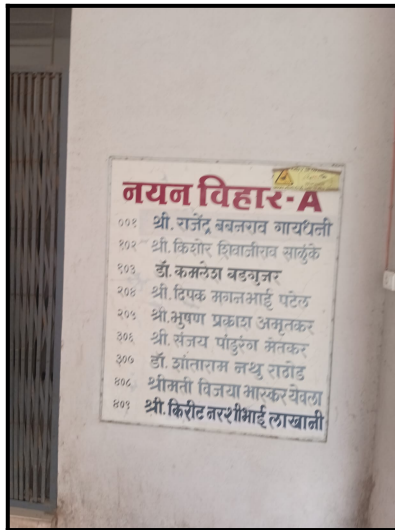 नयन विहार-A
००१ श्री. राजेंद्र बबनराव गायधनी
१०२ श्री. किशोर शिवाजीराव साळुंके
१०३ डॉ. कमलेश बडगुजर
२०४ श्री. दिपक मगनभाई पटेल
२०५ श्री. भुषण प्रकाश अमृतकर
३०६ श्री. संजय पांडुरंग मेतकर
३०७ डॉ. शांताराम नथु राठोड
४०८ श्रीमती विजया भास्कर येवला
४०९ श्री. किरीट नरशीभाई लाखानी